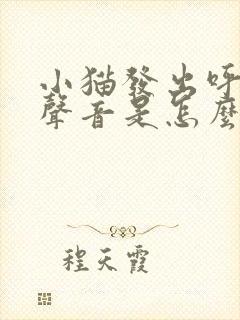 小猫發出呼
聲音是怎麼
程天霞